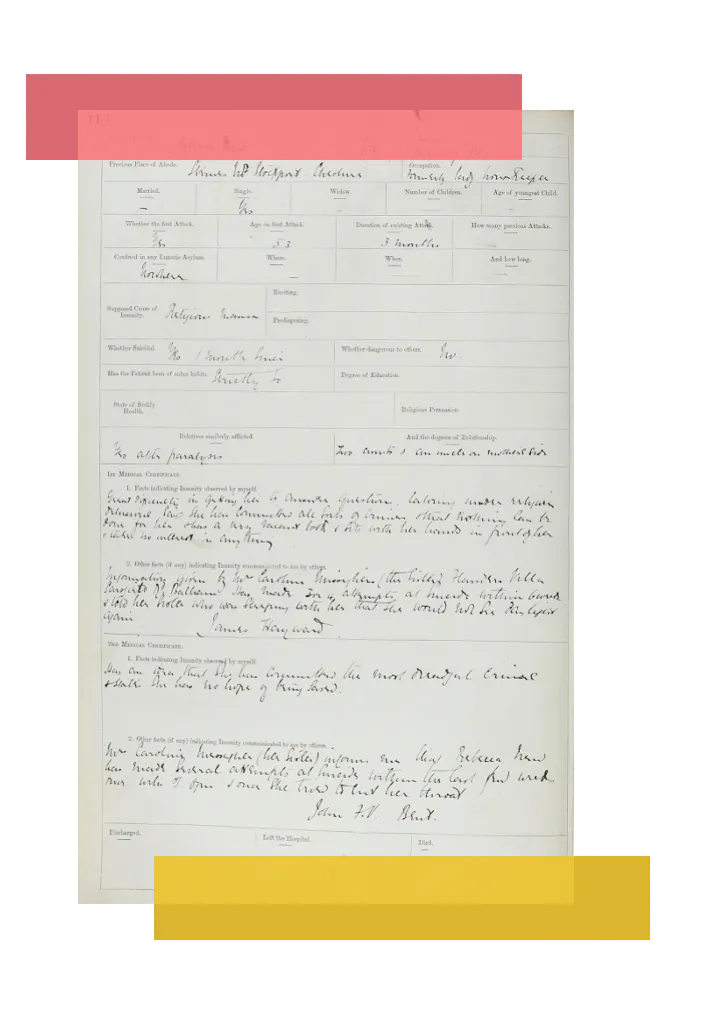 Previous Place of Abode. Stockport Cheshire Occupation. formerly lady housekeeper
Married. Single. Widow. Number of Children. Age of youngest Child.
— Yes – —
Whether the first Attack. Age on first Attack. Duration of existing Attack. How many previous Attacks.
Yes 53 3 months —
Confined in any Lunatic Asylum. Where. When. And how long.
—
Exciting.
Supposed Cause of
Insanity. Religious Mania
Predisposing.
Whether Suicidal. Yes 1 month since Whether dangerous to others. No.
Has the Patient been of sober habits. Strictly so Degree of Education.
State of Bodily
Health. Religious Persuasion.
Relatives similarly afflicted. And the degrees of Relationship.
Yes after paralysis Two aunts & an uncle on mother's side
1st Medical Certificate.
1. Facts indicating Insanity observed by myself.
Great difficulty in getting her to answer question, labouring under religious
delusions says she has committed all sorts of crimes & that nothing can be
done for her & has a very vacant look & sits with her hands in front of her
& takes no interest in anything
2. Other facts (if any) indicating Insanity communicated to me by others.
Information given by Mrs Caroline (the sister) Villa
Balham has made attempts at suicide within
& told her sister who was sleeping with her that she would not see daylight
again
James Hayward.
2nd Medical Certificate.
1. Facts indicating Insanity observed by myself.
Has an idea that she has committed the most dreadful crimes
& states she has no hope of being saved.
2. Other facts (if any) indicating Insanity communicated to me by others.
Mrs Caroline (her sister) informs me that Rebecca
has made several attempts at suicide within the last few weeks
once with & once she tried to cut her throat
John F.V. Bent.
Discharged. Left the Hospital. Died.
— — —